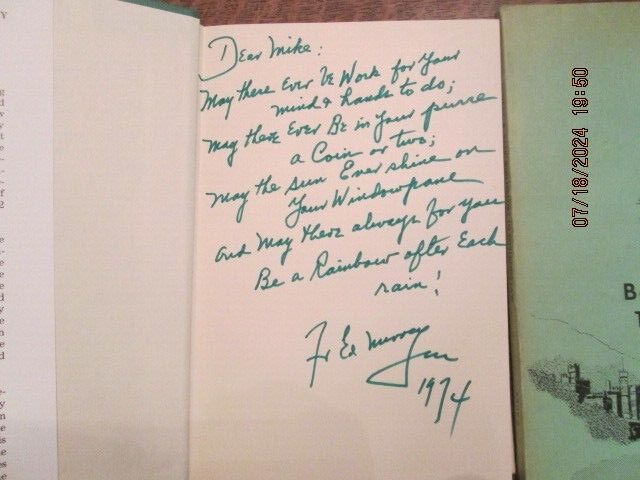 Dear Mike:
May there Ever Be Work for Your
mind & hands to do;
May there Ever Be in Your purse
a Coin or two;
May the sun Ever shine on
Your Windowpane
and May there always for you
Be a Rainbow after Each
rain!
Fr Ed Murray
1974
07/18/2024 19:50
B
T